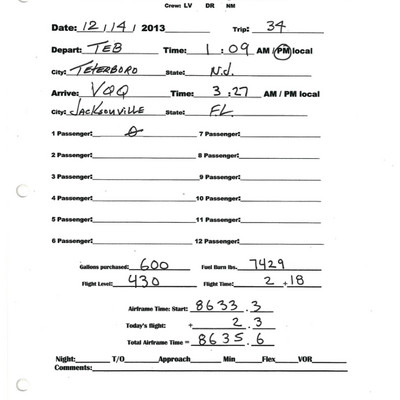 Crew: LV DR NM
Date: 12 / 14 / 2013 Trip: 34
Depart: TEB Time: 1 : 09 AM / PM local
City: TETERBORO State: N.J.
Arrive: VQQ Time: 3 : 27 AM / PM local
City: JACKSONVILLE State: FL
1 Passenger: 0 7 Passenger:
2 Passenger: 8 Passenger:
3 Passenger: 9 Passenger:
4 Passenger: 10 Passenger:
5 Passenger: 11 Passenger:
6 Passenger: 12 Passenger:
Gallons purchased: 600 Fuel Burn lbs. 7429
Flight Level: 430 Flight Time: 2 + 18
Airframe Time: Start: 8633 . 3
Today's flight: + 2 . 3
Total Airframe Time = 8635 . 6
Night: T/O Approach Min Flex VOR
Comments: